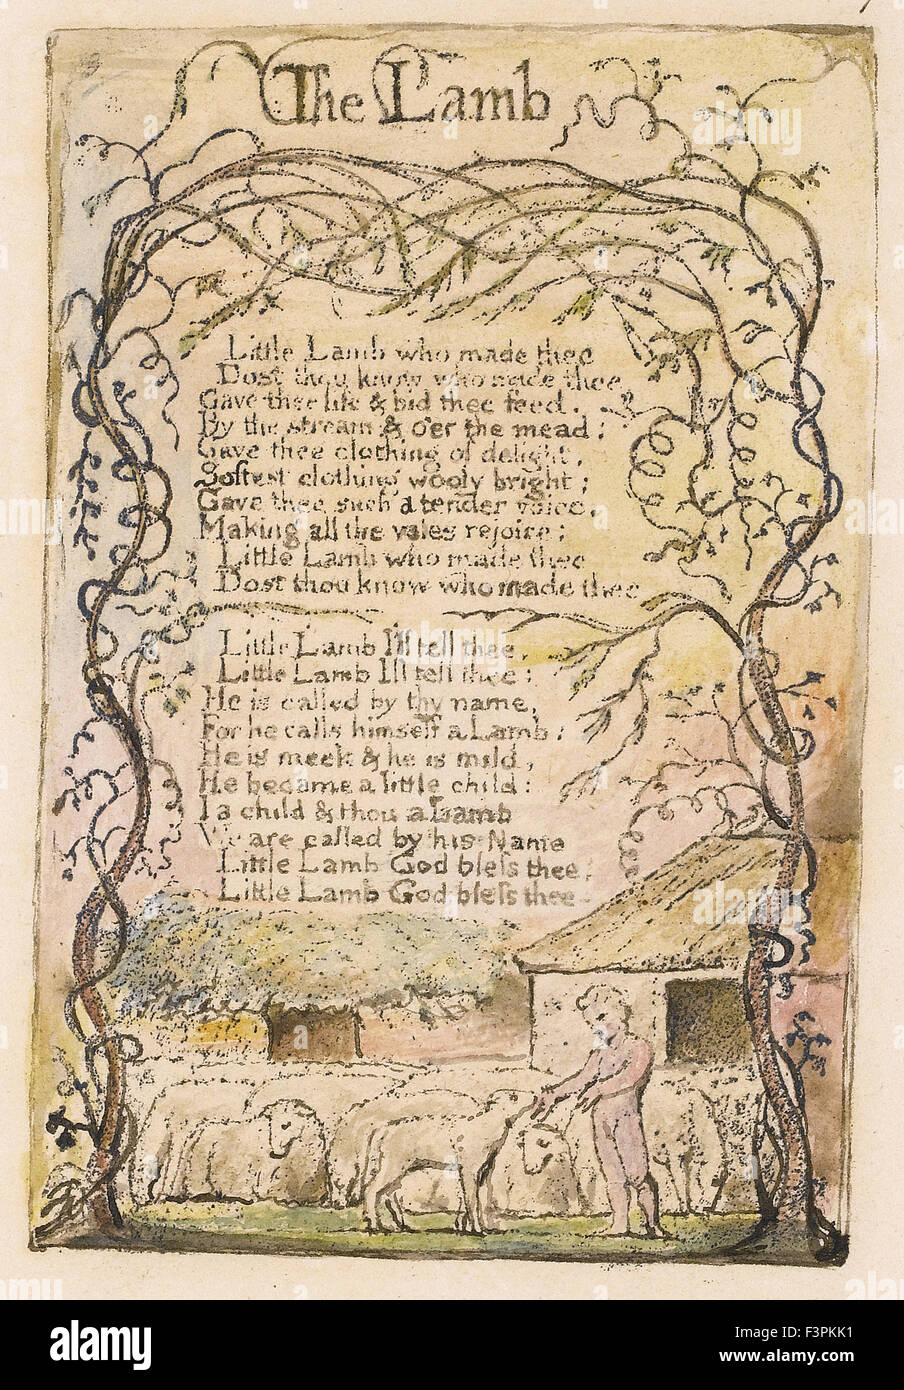 The Lamb
Little Lamb who made thee
Dost thou know who made thee
Gave thee life & bid thee feed.
By the stream & o'er the mead;
Gave thee clothing of delight,
Softest clothing wooly bright;
Gave thee such a tender voice,
Making all the vales rejoice;
Little Lamb who made thee
Dost thou know who made thee
Little Lamb I'll tell thee,
Little Lamb I'll tell thee;
He is called by thy name,
For he calls himself a Lamb:
He is meek & he is mild,
He became a little child:
I a child & thou a Lamb
We are called by his Name
Little Lamb God bleſs thee,
Little Lamb God bleſs thee
alamy
alamy
alamy
a
a
a
a
alamy
Image ID: F3PKK1
www.alamy.com